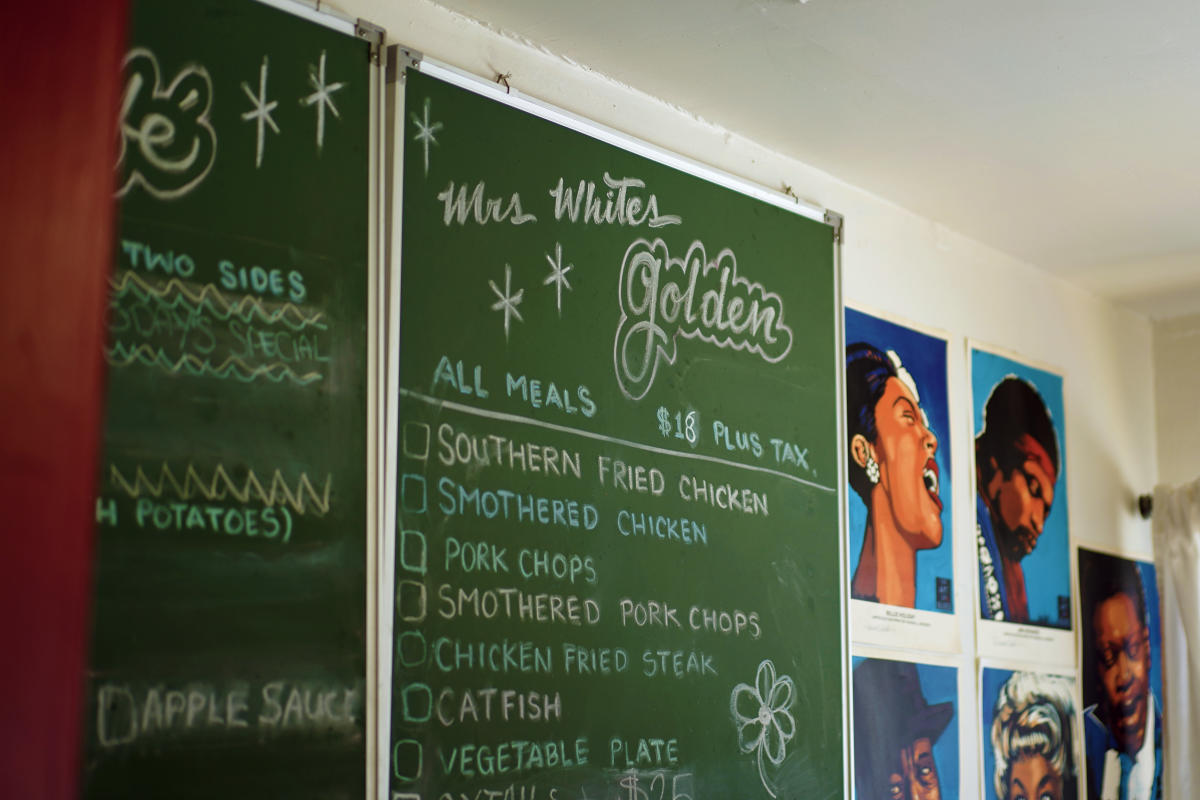 TWO SIDES
SPECIAL
POTATOES)
APPLE SAUCE
Mrs Whites
golden
ALL MEALS
$18 PLUS TAX.
SOUTHERN FRIED CHICKEN
SMOTHERED CHICKEN
PORK CHOPS
SMOTHERED PORK CHOPS
CHICKEN FRIED STEAK
CATFISH
VEGETABLE PLATE
OXTAILS $25
BILLIE HOLIDAY